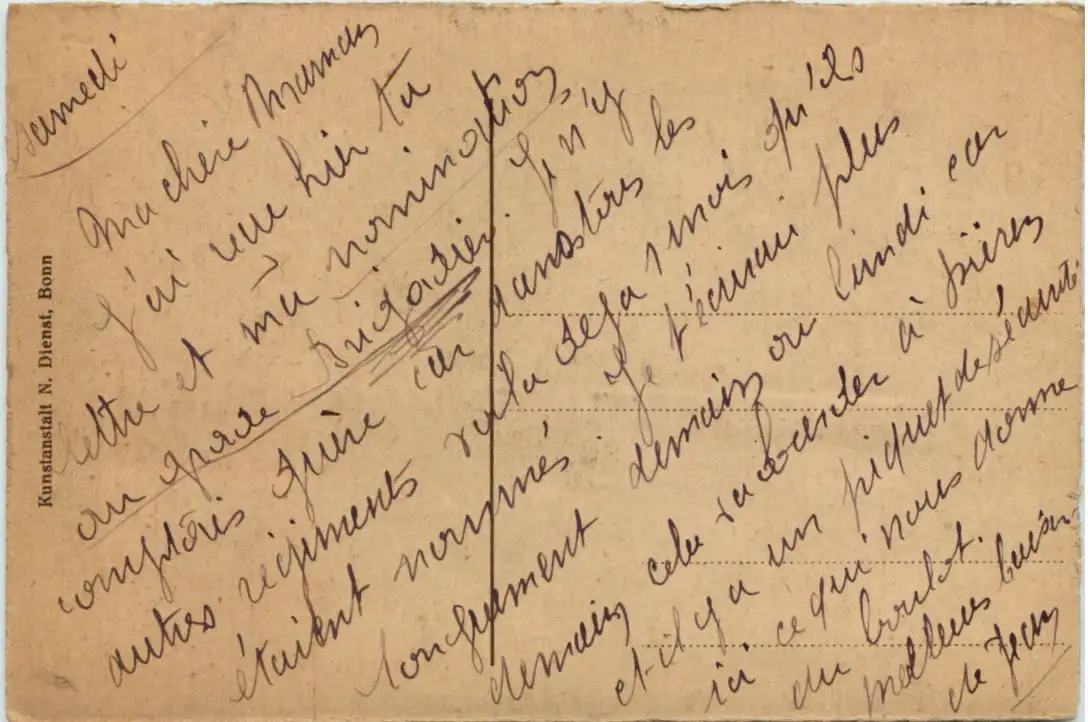 Samedi
Ma chère Maman
J'ai reçu hier ta
lettre et ma nomination
au grade Brigadier. Je n'y
comptais guère car dans les
autres régiments voila deja 1 mois qu'ils
étaient nommés. Je t'écrirai plus
longuement demain ou lundi car
demain cela va barder à
et il y a un piquet de sécurité
ici ce qui nous donne
du boulot.
Meilleurs baisers
de Jean
Kunstanstalt N. Dienst, Bonn